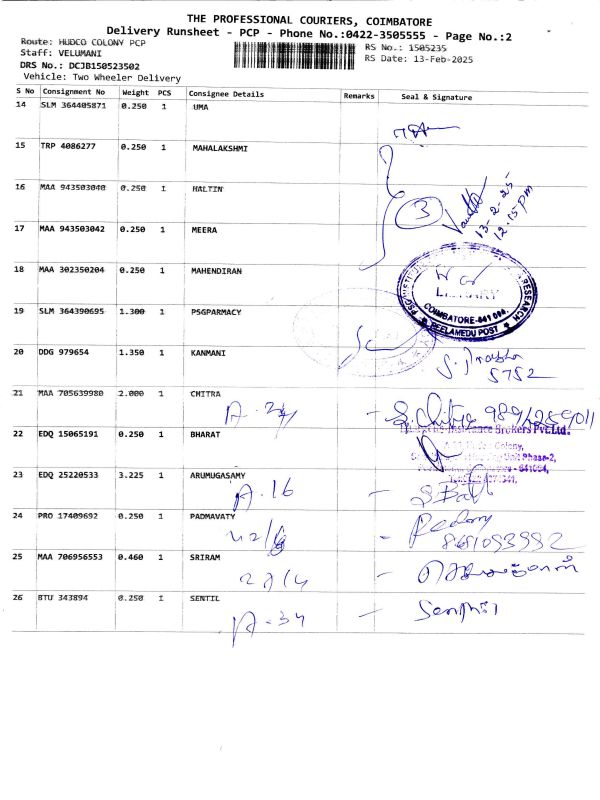 THE PROFESSIONAL COURIERS, COIMBATORE
Delivery Runsheet - PCP - Phone No.:0422-3505555 - Page No.:2
Route: HUDCO COLONY PCP
RS No.: 1505235
Staff: VELUMANI
RS Date: 13-Feb-2025
DRS No.: DCJB150523502
Vehicle: Two Wheeler Delivery
S No Consignment No Weight PCS Consignee Details Remarks Seal & Signature
14 SLM 364405871 0.250 1 UMA
15 TRP 4086277 0.250 1 MAHALAKSHMI
16 MAA 943503040 0.250 1 HALTIN
3
13-2-25
12.15 pm
17 MAA 943503042 0.250 1 MEERA
18 MAA 302350204 0.250 1 MAHENDIRAN
LIBRARY
RESEARCH
COIMBATORE-641 004.
PEELAMEDU POST
19 SLM 364390695 1.300 1 PSGPARMACY
20 DDG 979654 1.350 1 KANMANI
S. Prabha
5752
21 MAA 705639980 2.000 1 CHITRA
S. Chitra
Insurance Brokers Pvt.Ltd.
Colony,
Phase-2,
22 EDQ 15065191 0.250 1 BHARAT
23 EDQ 25220533 3.225 1 ARUMUGASAMY
A.16 -
24 PRO 17409692 0.250 1 PADMAVATY
25 MAA 706956553 0.460 1 SRIRAM
26 BTU 343894 0.250 1 SENTIL
A.34 -